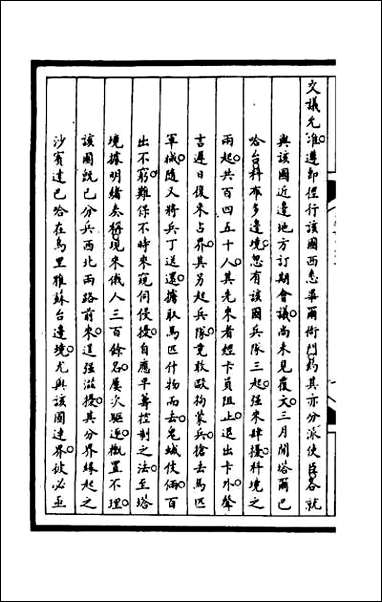 文議允准遵即捏行該國西悉畢爾衙門約其亦分派使臣各就
與該國近邊地方訂期會議尚未見覆文三月間塔爾巴
哈台科布多邊境忽有該國兵隊三起强來肆擾科境之
兩起共百四五十人其先來者經卡員阻止退出卡外聲
言遲日復來占界其另起兵隊竟敢毆拘蒙兵搶去馬匹
軍械隨又將兵丁送還擄取馬匹什物而去鬼蜮伎倆百
出不窮難保不時來窺伺侵擾自應早籌控制之法至塔
境據明緒奏稱現來俄人三百餘名屢次驅逐概置不理
該國既已分兵西北兩路前來逞强滋擾其分界緣起之
沙賓達巴哈在烏里雅蘇台邊境尤與該國連界彼必亟